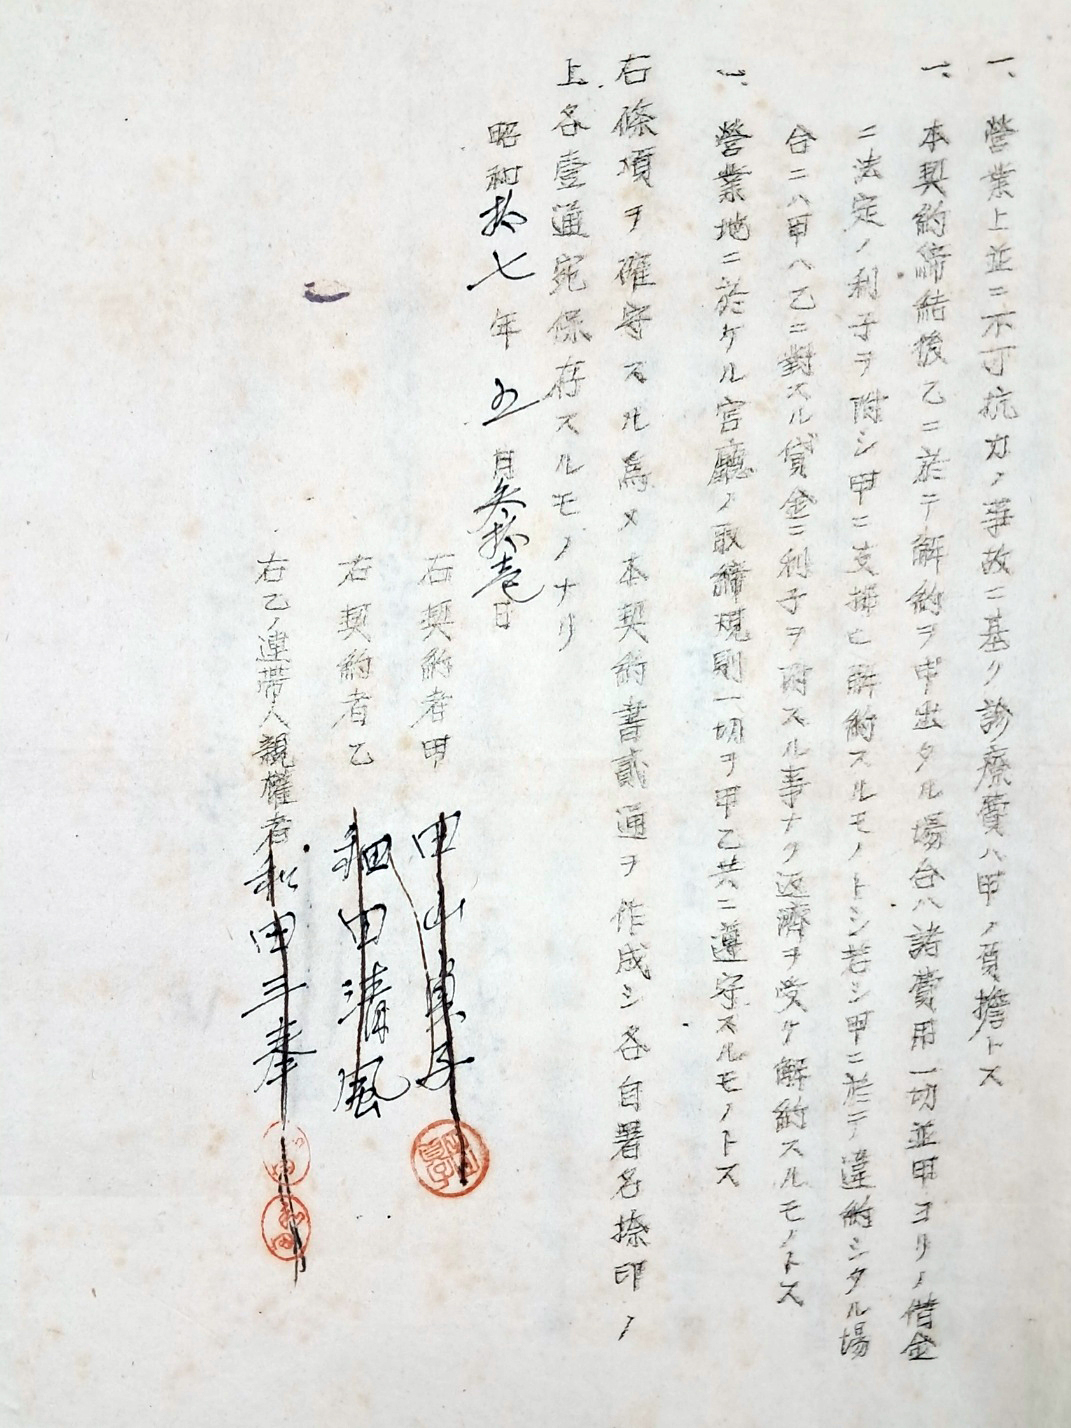 一、營業上並ニ不可抗力ノ事故ニ基ク診療費ハ甲ノ負擔トス
一、本契約締結後乙ニ於テ解約ヲ申出タル場合ハ諸費用一切並甲ヨリノ借金
ニ法定ノ利子ヲ附シ甲ニ支拂ヒ解約スルモノトシ若シ甲ニ於テ違約シタル場
合ニハ甲ハ乙ニ對スル貸金ニ利子ヲ附スル事ナク返濟ヲ受ケ解約スルモノトス
一、營業地ニ於ケル官廳ノ取締規則一切ヲ甲乙共ニ遵守スルモノトス
右條項ヲ確守スル為メ本契約書貳通ヲ作成シ各自署名捺印ノ
上各壹通宛保存スルモノナリ
昭和拾七年五月参拾壱日
右契約者甲
右契約者乙 細田清風
右乙ノ連帯人親權者 和田三奉
和田